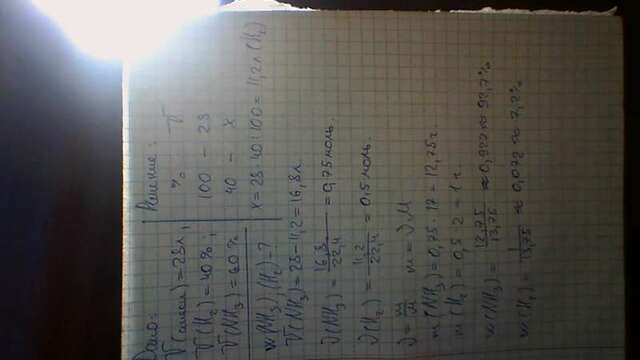 Дано:
V(смеси) = 28л;
V(H₂) = 40%;
V(NH₃) = 60%
w(NH₃), (H₂) = ?
Решение:
% V
100 — 28
40 — x
x = 28·40:100 = 11,2л (H₂)
V(NH₃) = 28 - 11,2 = 16,8л
ν(NH₃) = 16,8/22,4 = 0,75 моль.
ν(H₂) = 11,2/22,4 = 0,5 моль.
ν = m/M m = ν·M
m(NH₃) = 0,75·17 = 12,75г.
m(H₂) = 0,5·2 = 1г.
w(NH₃) = 12,75/13,75 ≈ 0,927 ≈ 92,7%
w(H₂) = 1/13,75 ≈ 0,072 ≈ 7,2%